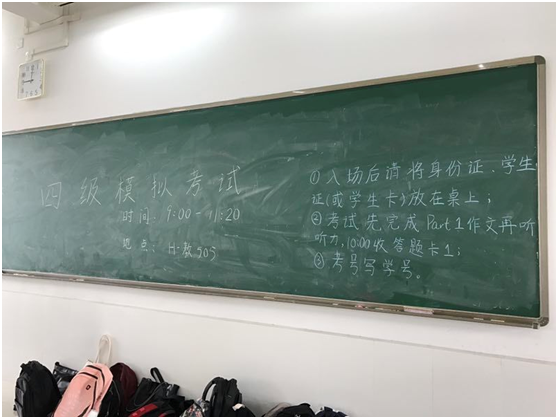 四级模拟考试
时间：9:00-11:20
地点：H-教505
①入场后请将身份证、学生
证(或学生卡)放在桌上；
②考试先完成Part1作文再听
听力，10:00收答题卡1；
③考号写学号。